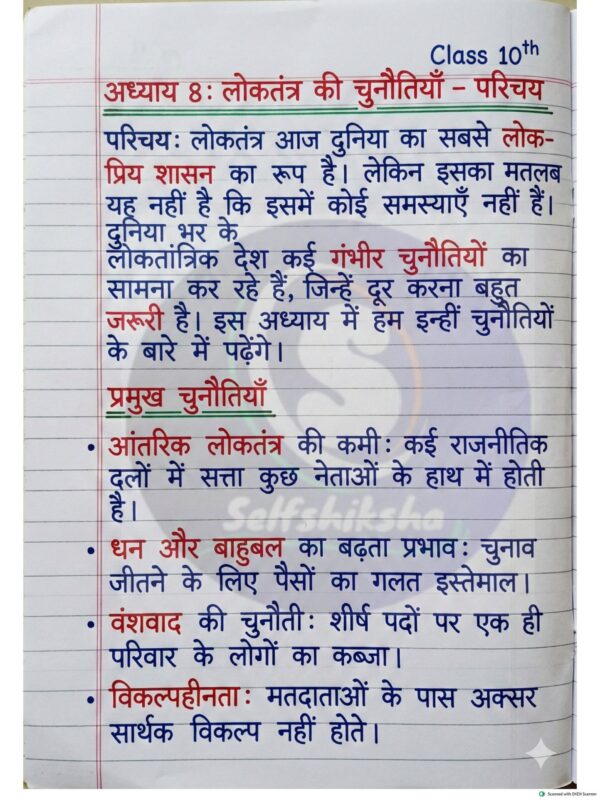 Class 10th
अध्याय 8: लोकतंत्र की चुनौतियाँ – परिचय
परिचय: लोकतंत्र आज दुनिया का सबसे लोक-
प्रिय शासन का रूप है। लेकिन इसका मतलब
यह नहीं है कि इसमें कोई समस्याएँ नहीं हैं।
दुनिया भर के
लोकतांत्रिक देश कई गंभीर चुनौतियों का
सामना कर रहे हैं, जिन्हें दूर करना बहुत
जरूरी है। इस अध्याय में हम इन्हीं चुनौतियों
के बारे में पढ़ेंगे।
प्रमुख चुनौतियाँ
• आंतरिक लोकतंत्र की कमी: कई राजनीतिक
दलों में सत्ता कुछ नेताओं के हाथ में होती
है।
Selfshiksha
• धन और बाहुबल का बढ़ता प्रभाव: चुनाव
जीतने के लिए पैसों का गलत इस्तेमाल।
• वंशवाद की चुनौती: शीर्ष पदों पर एक ही
परिवार के लोगों का कब्जा।
• विकल्पहीनता: मतदाताओं के पास अक्सर
सार्थक विकल्प नहीं होते।
Scanned with OKEN Scanner